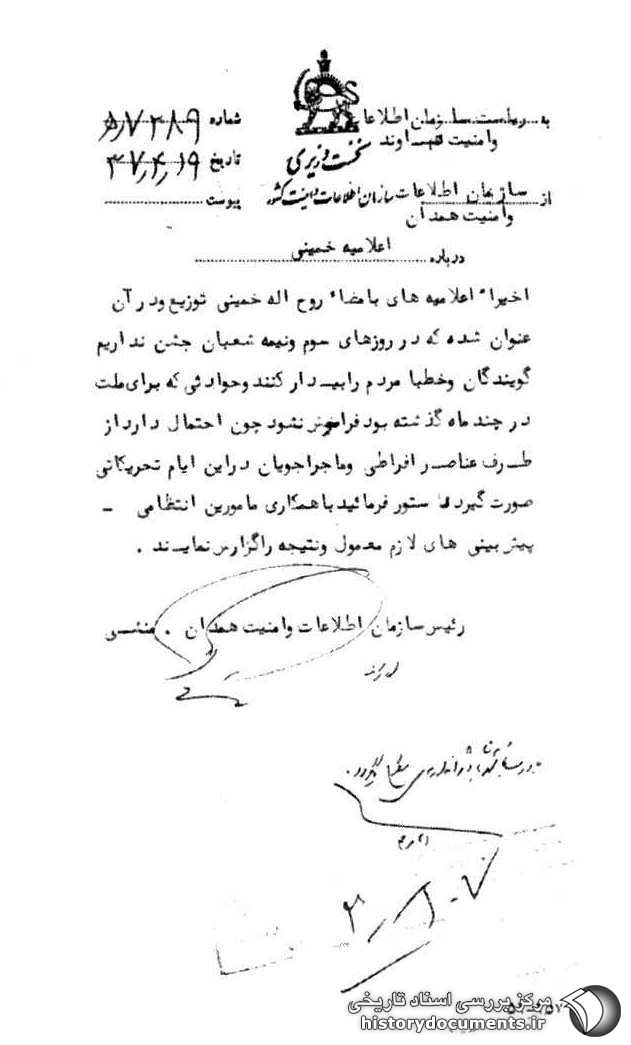 به ریاست سازمان اطلاعات
وامنیت نهاوند
نخست وزیری
سازمان اطلاعات وامنیت کشور
از سازمان اطلاعات
وامنیت همدان
شماره ۵٫۷۳۸۹
تاریخ ۳۷٫۴٫۱۹
پیوست
درباره اعلامیه خمینی
اخیراً اعلامیه های بامضاء روح اله خمینی توزیع ودر آن
عنوان شده که در روزهای سوم ونیمه شعبان جشن نداریم
گویندگان وخطبا مردم رابیدار کنند وحوادثی که برای ملت
در چند ماه گذشته بود فراموش نشود چون احتمال دارد از
طرف عناصر افراطی وماجراجویان دراین ایام تحریکاتی
صورت گیرد دستور فرمائید باهمکاری مامورین انتظامی -
پیش بینی های لازم معمول ونتیجه راگزارش نمایند .
رئیس سازمان اطلاعات وامنیت همدان . منشی
مرکز بررسی اسناد تاریخی
historydocuments.ir